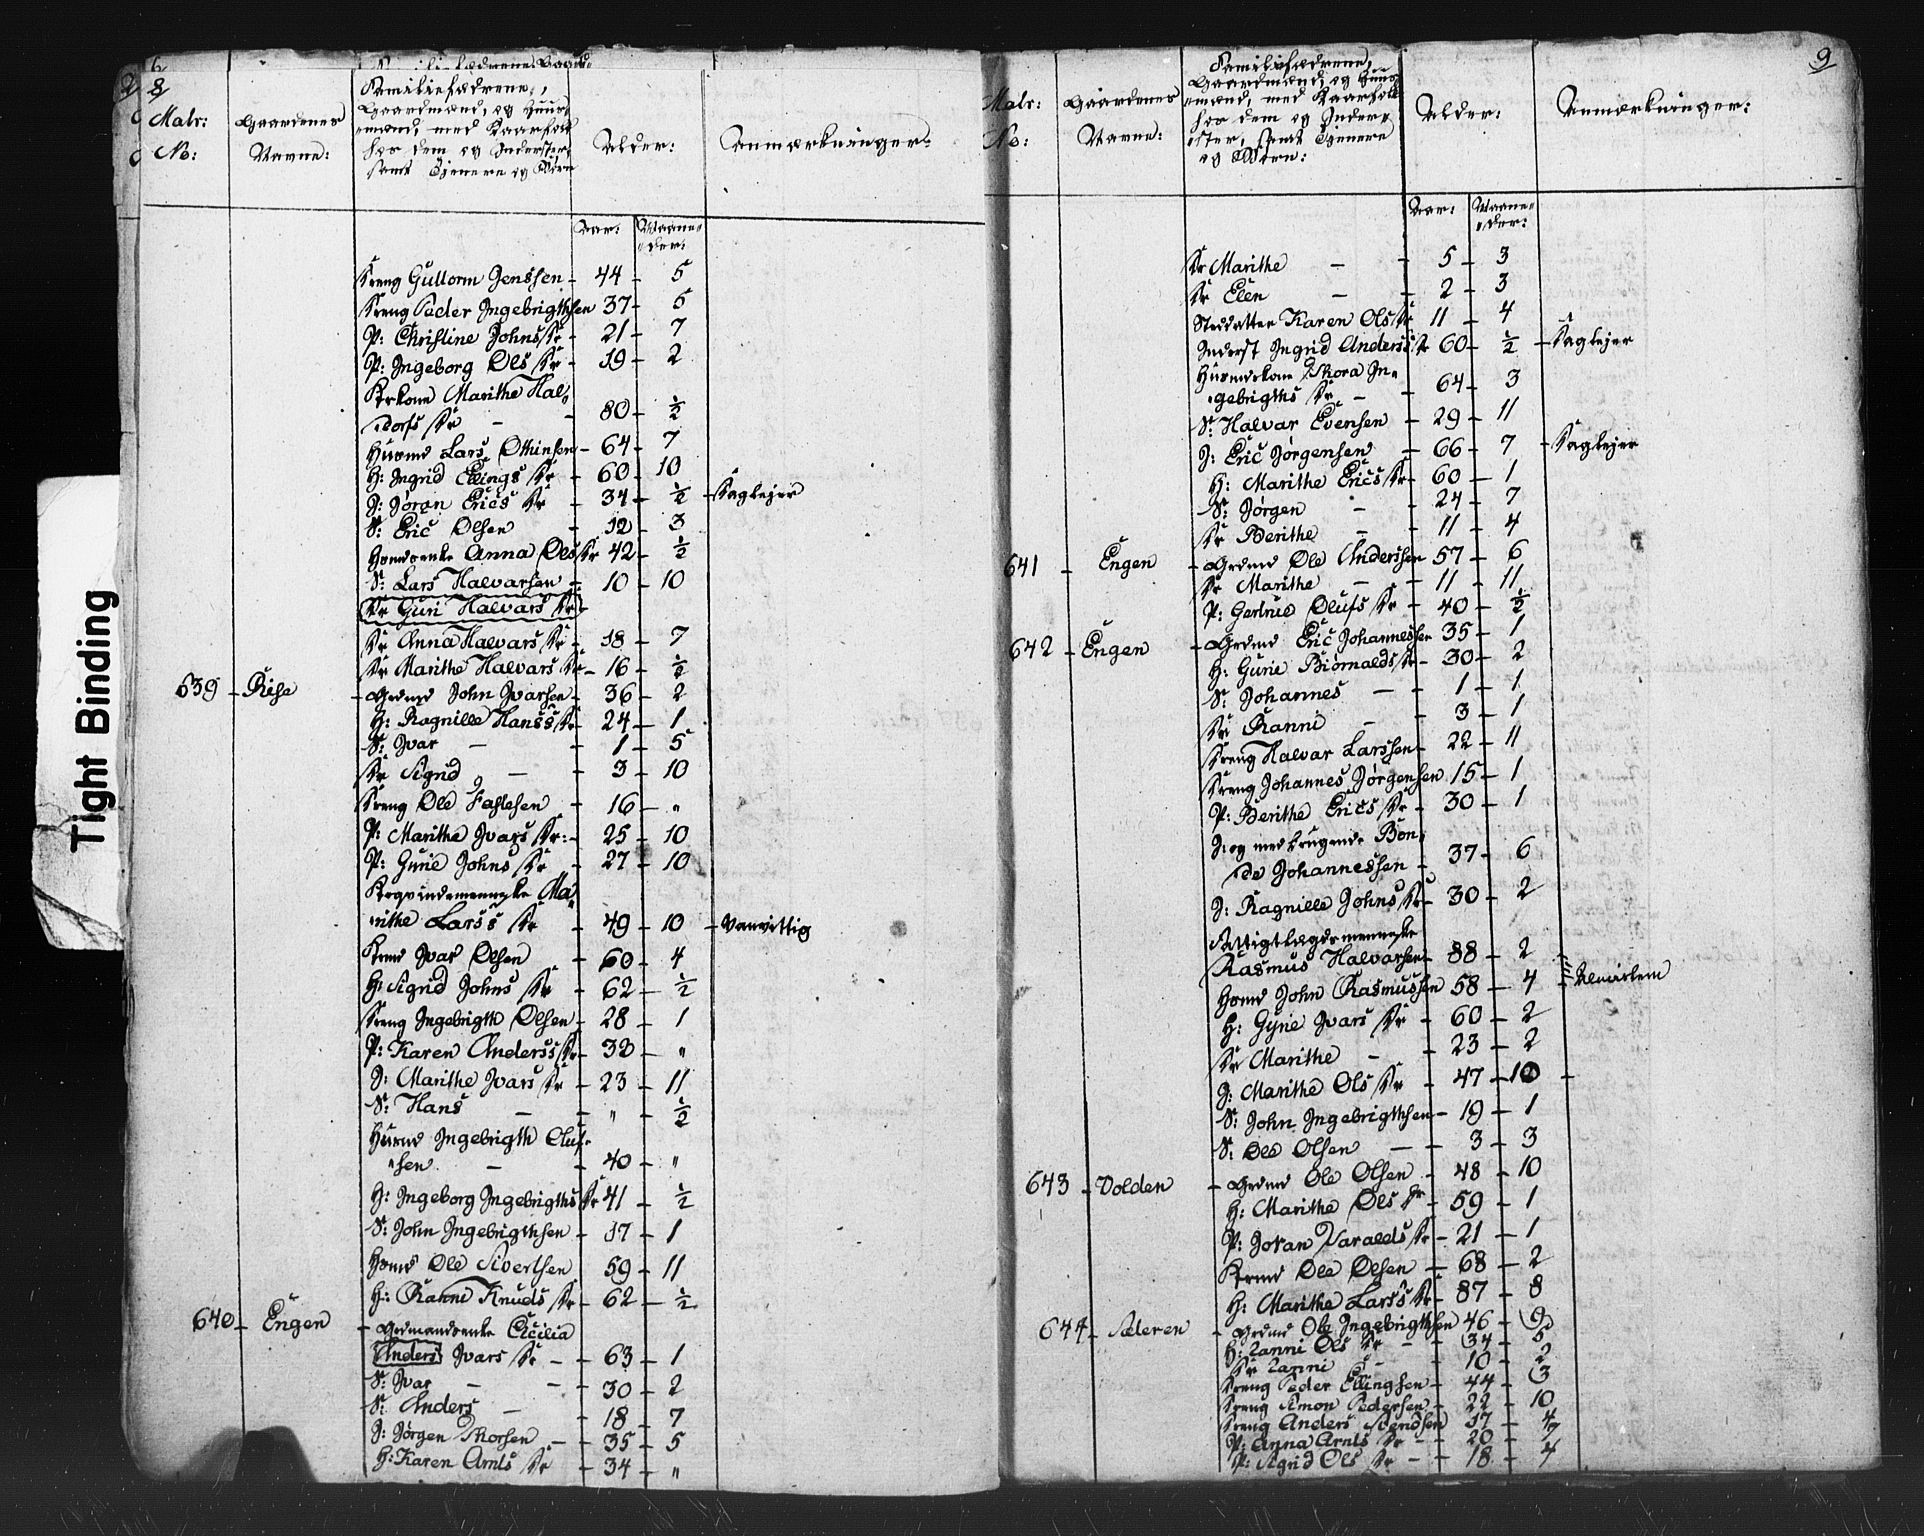 8
Matr:
No:
Gaardenes
Navne:
Familiefædrene,
Gaardmænd, og Huus-
mænd, med Kaarfolk
hos dem og Inderster,
samt Tjenere og Børn
Alder:
Anmærkninger:
Aar: Maane-
der:
Dreng Guttorm Jenssen - 44 - 5
Dreng Peder Ingebrigthsen 37 - 5
P: Christine Johns Dr - 21 - 7
P: Ingeborg Ols Dr - 19 - 2
Krkone Marithe Hal-
dors Dr - 80 - ½
Huusmd Lars Othinsen - 64 - 7
H: Ingrid Ellings Dr - 60 - 10
I: Jøran Erics Dr - 34 - ½ - Baglejer
S: Eric Olsen - 12 - 3
Huusmdsenke Anna Ols Dr 42 - ½
S: Lars Halvarsen - 10 - 10
Dr Guri Halvars Dr -
Dr Anna Halvars Dr - 18 - 7
Dr Marithe Halvars Dr - 16 - ½
639 - Rise - Grdmd John Ivarsen - 36 - 2
H: Ragnille Hanss Dr - 24 - 1
S: Ivar - - 1 - 5
Dr Sigrid - - 3 - 10
Dreng Ole Faslesen - 16 - "
P: Marithe Ivars Dr: - 25 - 10
P: Gurie Johns Dr - 27 - 10
Ma-
rithe Larss Dr - 49 - 10 - Vanvittig
Krmd Ivar Olsen - 60 - 4
H: Sigrid Johns Dr - 62 - ½
Dreng Ingebrigth Olsen - 28 - 1
P: Karen Anderss Dr - 38 - "
I: Marithe Ivars Dr - 23 - 11
S: Hans - - " - ½
Huusmd Ingebrigth Oluf-
sen - 40 - "
H: Ingeborg Ingebrigths Dr 41 - ½
S: John Ingebrigthsen - 17 - 1
Huusmd Ole Sivertsen 59 - 11
H: Ranni Knuds Dr - 62 - ½
640 - Engen - Grdmandsenke Cicilia
Anders Ivars Dr - - 63 - 1
S: Ivar - - 30 - 2
S: Anders - - 18 - 7
I: Jørgen Thorsen - - 35 - 5
H: Karen Arnts Dr - 34 - "
9
Matr:
No:
Gaardenes
Navne:
Familiefædrene,
Gaardmænd, og Huus-
mænd, med Kaarfolk
hos dem og Inder-
ster, samt Tjenere
og Børn:
Alder:
Anmærkninger:
Aar: Maane-
der:
Dr Marithe - - 5 - 3
Dr Elen - - 2 - 3
Steddatter Karen Ols Dr 11 - 4
Inderst Ingrid Anders Dr 60 - ½ - Baglejer
Huusmdskone Thora In-
gebrigths Dr - - 64 - 3
S: Halvar Evensen - 29 - 11
I: Eric Jørgensen - 66 - 7 - Baglejer
H: Marithe Erics Dr - 60 - 1
S: Jørgen - - 24 - 7
Dr Berithe - - 11 - 4
641 - Engen - Grdmd Ole Anderssen 57 - 6
Dr Marithe - - 11 - 11
P: Gertrue Olufs Dr - 40 - ½
642 - Engen - Grdmd Eric Johannessen 35 - 1
H: Gurie Biørnalds Dr - 30 - 2
S: Johannes - - 1 - 1
Dr Ranni - - 3 - 1
Dreng Halvar Larssen - 22 - 11
Dreng Johannes Jørgensen 15 - 1
P: Berithe Erics Dr - 30 - 1
I: og medbrugende Bon-
de Johannessen - 37 - 6
I: Ragnille Johns Dr - 30 - 2
Fattiglægdsmenneske
Rasmus Halvarsen - 88 - 2
Huusmd John Rasmussen 58 - 4
H: Gurie Ivars Dr - 60 - 2
Dr Marithe - - 23 - 2
I: Marithe Ols Dr - 47 - 10 -
S: John Ingebrigthsen - 19 - 1
S: Ole Olsen - - 3 - 3
643 - Volden - Grdmd Ole Olsen - 48 - 10
H: Marithe Ols Dr - 59 - 1
P: Joran Haralds Dr - 21 - 1
Krmd Ole Olsen - 68 - 2
H: Marithe Larss Dr - 87 - 8
644 - Sæteren - Grdmd Ole Ingebrigthsen 46 - 9
H: Ranni Ols Dr - - 34 - 5
Dr Ranni - - 10 - 2
Dreng Peder Ellingsen - 44 - 3
Dreng Simon Pedersen - 22 - 10
Dreng Anders Svendsen 17 - 4
P: Anna Arnts Dr - - 20 - 7
P: Sigrid Ols Dr - - 18 - 4
Tight Binding